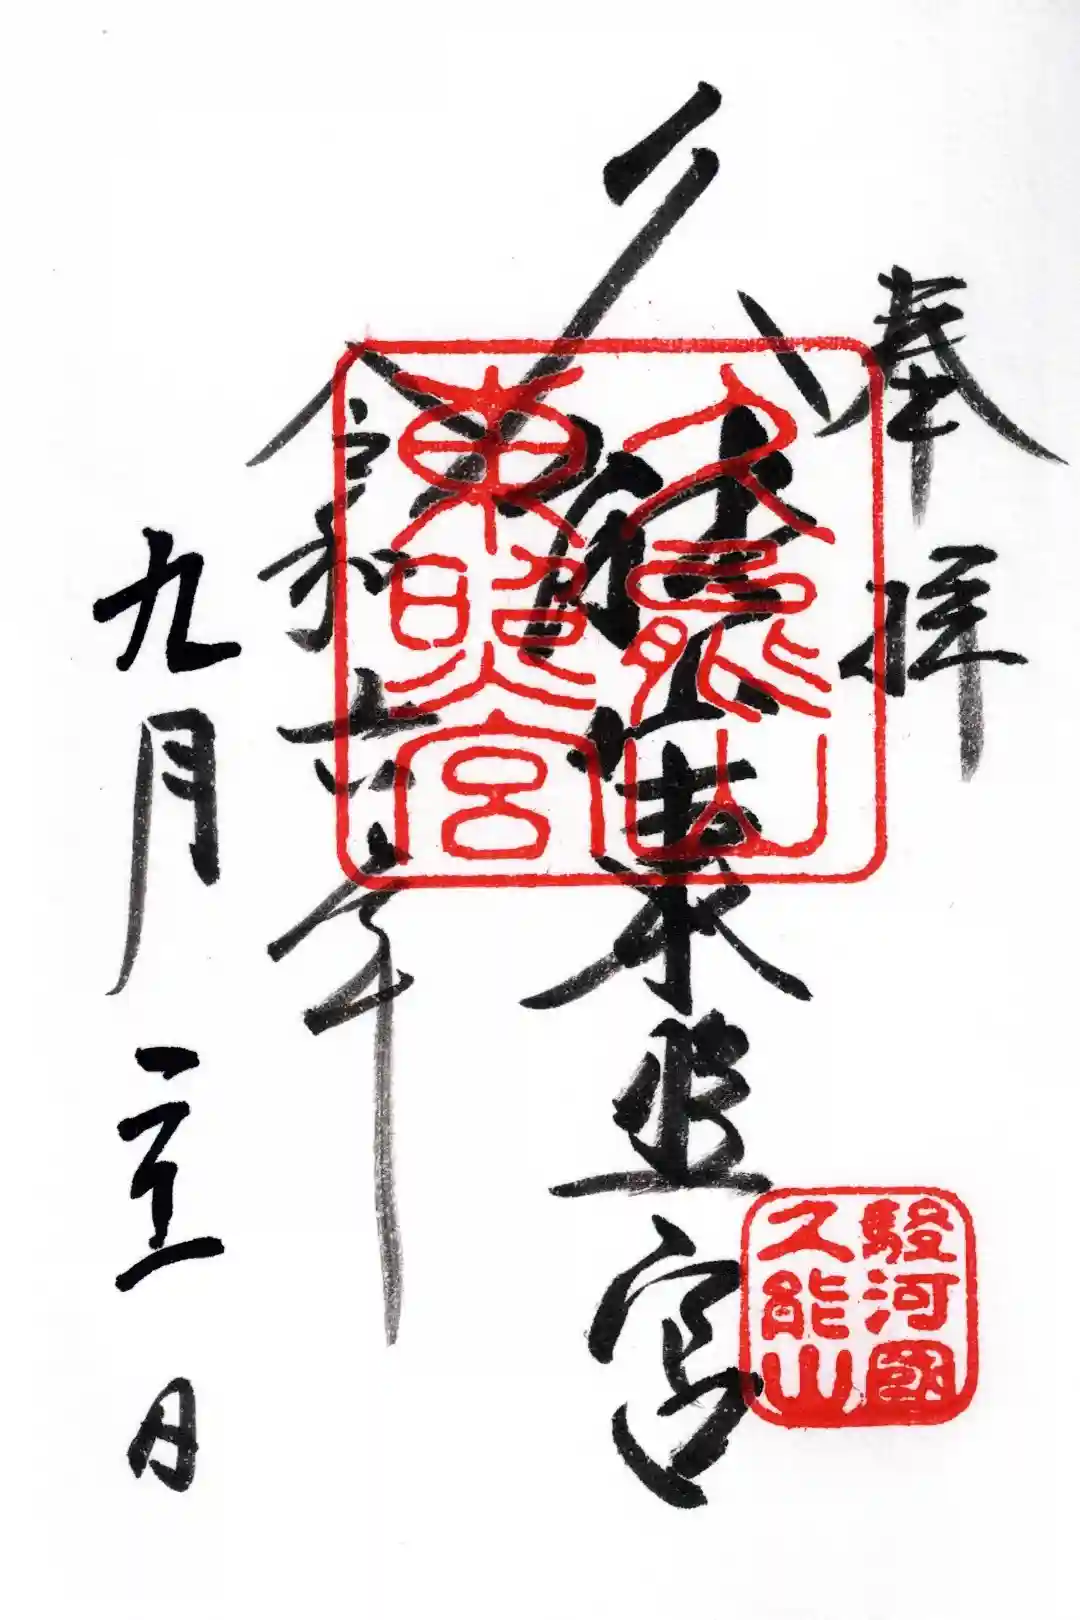 奉拝
久能山東照宮
久能山
東照宮
駿河國
久能山
令和六年
九月 日